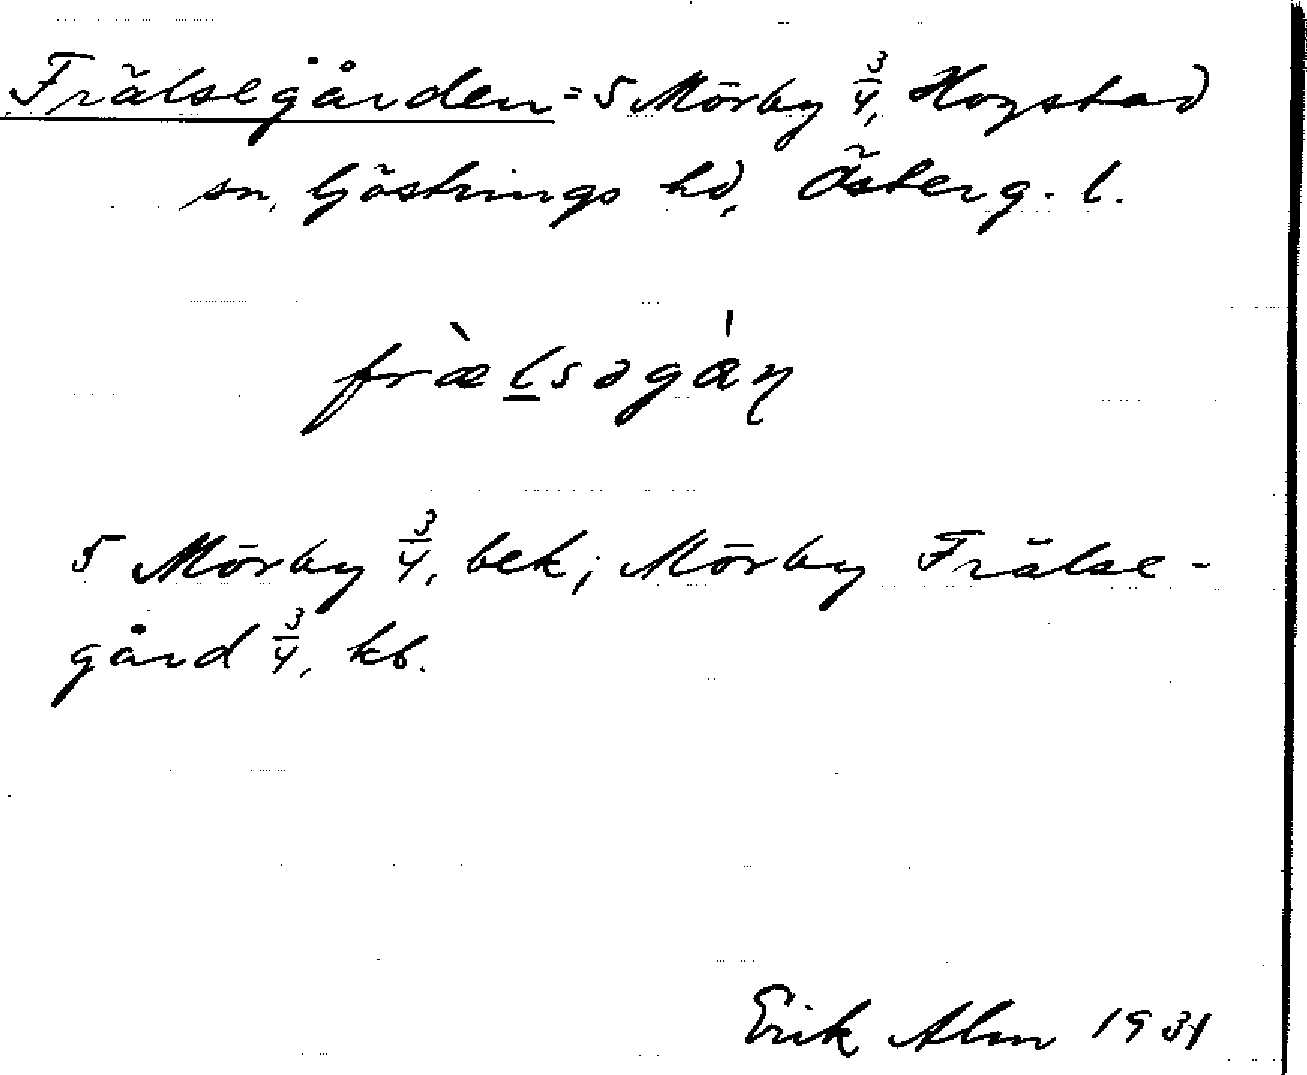 Frälsegården = 5 Mörby 3/4, Hogstad
sn, Göstrings hd, Österg. l.
fràelsəgáη
5 Mörby 3/4, bek; Mörby Frälse-
gård 3/4, kb.
Erik Alm 1931